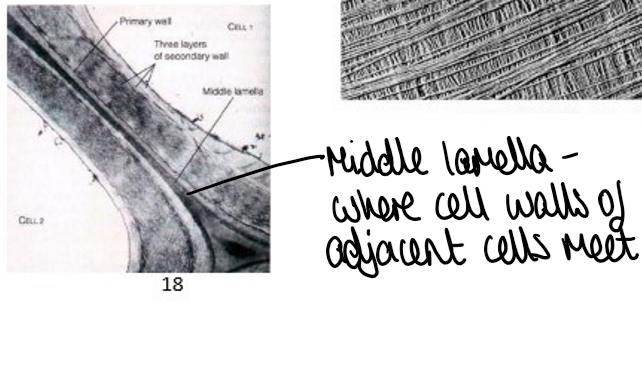 Primary wall
CELL 1
Three layers
of secondary wall
Middle lamella
Middle lamella -
where cell walls of
adjacent cells meet
CELL 2
18